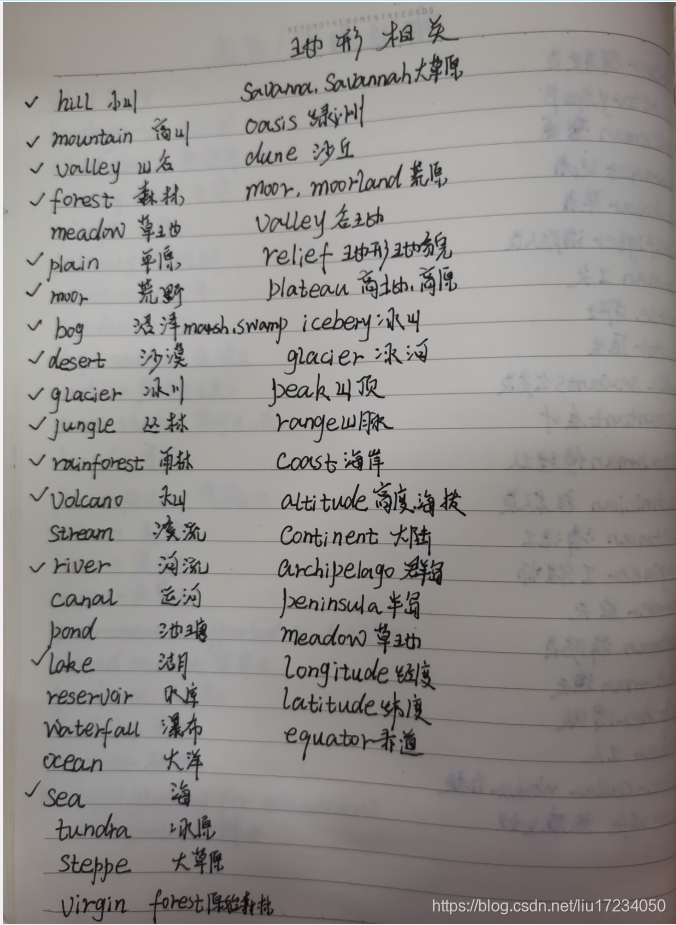 地形相关
✓ hill 小山
✓ mountain 高山
✓ valley 山谷
✓ forest 森林
meadow 草地
✓ plain 草原
✓ moor 荒野
✓ bog 沼泽 marsh, swamp
✓ desert 沙漠
✓ glacier 冰川
✓ jungle 丛林
✓ rainforest 雨林
✓ volcano 火山
stream 溪流
✓ river 河流
canal 运河
pond 池塘
✓ lake 湖
reservoir 水库
waterfall 瀑布
ocean 大洋
✓ sea 海
tundra 冰原
steppe 大草原
virgin forest 原始森林
savanna, savannah 大草原
oasis 绿洲
dune 沙丘
moor, moorland 荒原
valley 谷地
relief 地形地貌
plateau 高地,高原
icebery 冰山
glacier 冰河
peak 山顶
range 山脉
coast 海岸
altitude 高度,海拔
continent 大陆
archipelago 群岛
peninsula 半岛
meadow 草地
longitude 经度
latitude 纬度
equator 赤道
https://blog.csdn.net/liu17234050